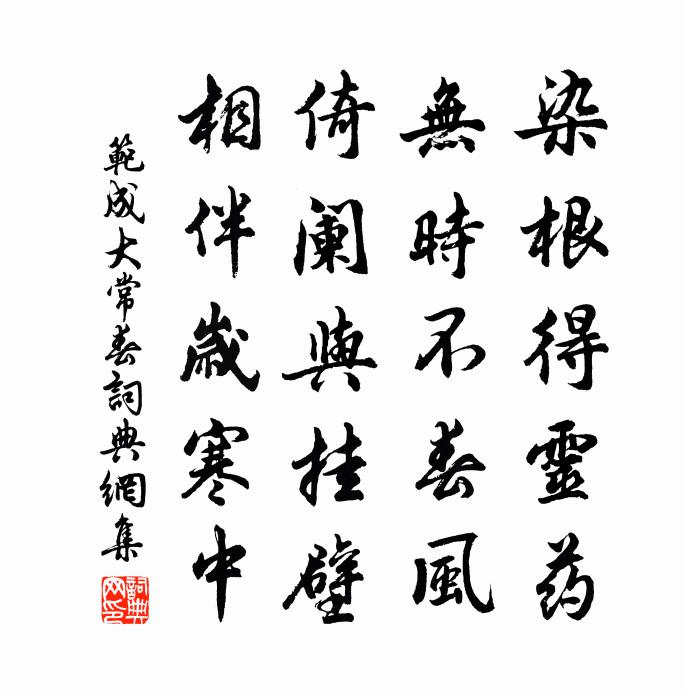 染根得靈药
無時不春風
倚阑與挂壁
相伴歲寒中
範成大常春詞典網集
詞典網印